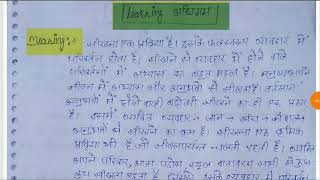 Learning अधिगम
Meaning:- सीखना एक प्रक्रिया है। इसके फलस्वरूप व्यवहार में
परिवर्तन होता है। सीखने से व्यवहार में होने वाले
परिवर्तनों में अभ्यास का बहुत महत्व है। मनुष्य अपने
जीवन में अभ्यास और अनुभवों से सीखता है। वर्तमान
अनुभवों में होने वाली बढ़ोतरी सीखने का ही एक प्रकार
है। इसमें व्यक्ति व्यवहार
अनुभवों से सीखने का क्रम है। सीखना एक क्रमिक
प्रक्रिया भी है जो जीवनपर्यन्त चलती रहती है। व्यक्ति
अपने परिवार, आस पड़ोस स्कूल वातावरण सभी से कुछ
कुछ सीखता रहता है उसके व्यवहार में परिवर्तन